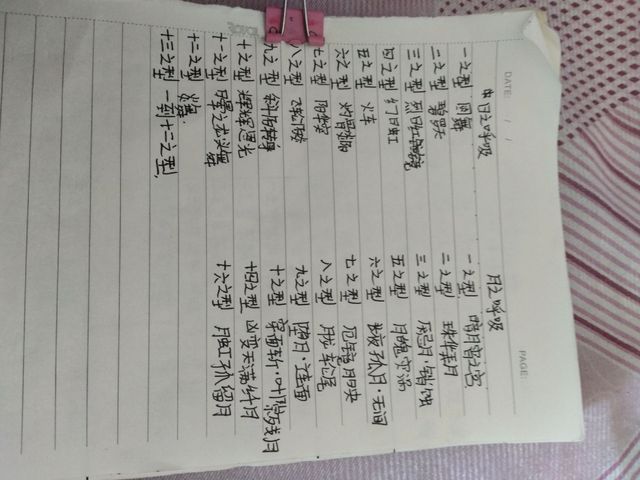 DATE: / /
PAGE:
日之呼吸 月之呼吸
一之型 圆舞 一之型 暗月宵之宫
二之型 碧罗天 二之型 珠华弄月
三之型 烈日红镜 三之型 厌忌月·销蚀
四之型 幻日虹 五之型 月魄灾涡
五之型 火车 六之型 夜孤月·无间
六之型 灼骨炎阳 七之型 厄镜月映
七之型 阳华突 八之型 月龙轮尾
八之型 飞轮 九之型 降月·连面
九之型 斜阳转身 十之型 穿面斩·月
十之型 辉辉恩光 十四之型 凶变天满纤月
十一之型 日晕之龙头舞 十六之型 月虹·孤留月
十二之型 炎舞.
十三之型 一到十二之型.